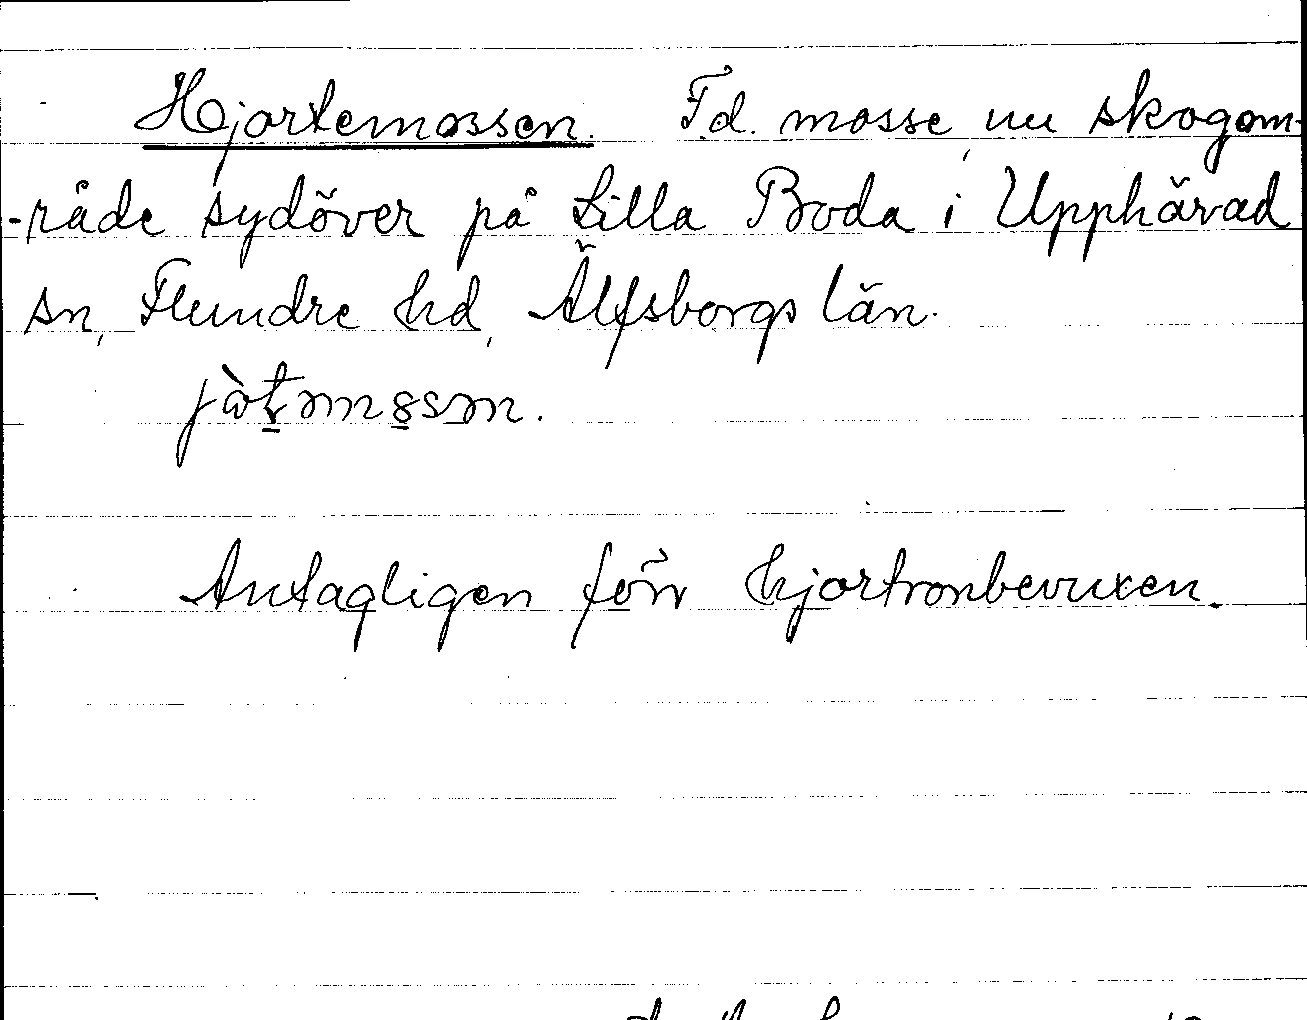 Hjortemossen. F.d. mosse, nu skogom-
-råde sydöver på Lilla Boda i Upphärad
sn, Flundre hd, Älfsborgs län.
Antagligen förr hjortronbevuxen.